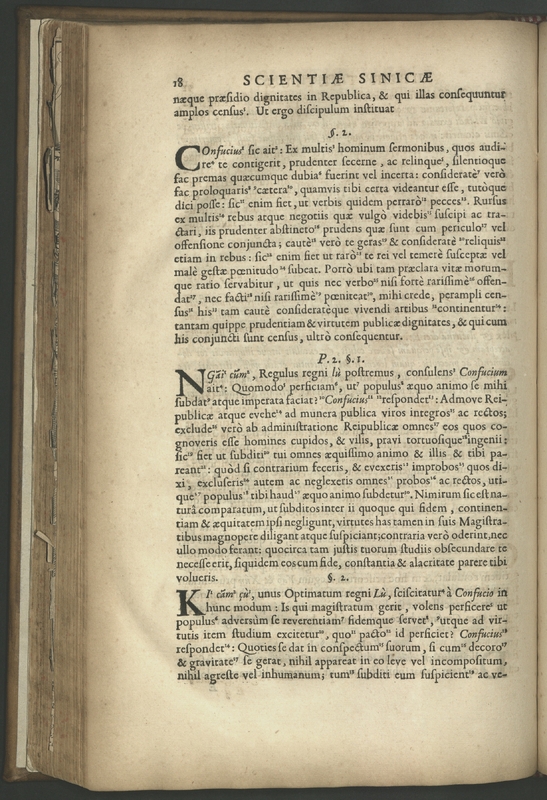 18 SCIENTIÆ SINICÆ
næque præsidio dignitates in Republica, & qui illas consequuntur
amplos census¹. Ut ergo discipulum instituat
§. 2.
COnfucius¹ sic ait²: Ex multis³ hominum sermonibus, quos audi-
re⁴ te contigerit, prudenter secerne, ac relinque⁵, silentioque
fac premas quæcumque dubia⁶ fuerint vel incerta: consideratè⁷ verò
fac proloquaris⁸ ⁹cætera¹⁰, quamvis tibi certa videantur esse, tutòque
dici posse: sic¹¹ enim fiet, ut verbis quidem perrarò¹² pecces¹³. Rursus
ex multis¹⁴ rebus atque negotiis quæ vulgò videbis¹⁵ suscipi ac tra-
ctari, iis prudenter abstineto¹⁶ prudens quæ sunt cum periculo¹⁷ vel
offensione conjuncta; cautè¹⁸ verò te geras¹⁹ & consideratè ²⁰reliquis²¹
etiam in rebus: sic²² enim fiet ut rarò²³ te rei vel temerè susceptæ vel
malè gestæ pœnitudo²⁴ subeat. Porrò ubi tam præclara vitæ morum-
que ratio servabitur, ut quis nec verbo²⁵ nisi fortè rarissimè²⁶ offen-
dat²⁷, nec facti²⁸ nisi rarissimè²⁹ pœniteat³⁰, mihi crede, perampli cen-
sus³¹ his³² tam cautè consideratèque vivendi artibus ³³continentur³⁴:
tantam quippe prudentiam & virtutem publicæ dignitates, & qui cum
his conjuncti sunt census, ultrò consequentur.
P. 2. §. 1.
NGāi¹ cūm², Regulus regni lù postremus, consulens³ Confucium
ait⁴: Quomodo⁵ perficiam⁶, ut⁷ populus⁸ æquo animo se mihi
subdat⁹ atque imperata faciat? ¹⁰Confucius¹¹ ¹²respondet¹³: Admove Rei-
publicæ atque evehe¹⁴ ad munera publica viros integros¹⁵ ac rectos;
exclude¹⁶ verò ab administratione Reipublicæ omnes¹⁷ eos quos co-
gnoveris esse homines cupidos, & vilis, pravi tortuosique¹⁸ ingenii:
sic¹⁹ fiet ut subditi²⁰ tui omnes æquissimo animo & illis & tibi pa-
reant²¹: quòd si contrarium feceris, & evexeris²² improbos²³ quos di-
xi, excluseris²⁴ autem ac neglexeris omnes²⁵ probos²⁶ ac rectos, uti-
que²⁷ populus²⁸ tibi haud²⁹ æquo animo subdetur³⁰. Nimirum sic est na-
turâ comparatum, ut subditos inter ii quoque qui fidem, continen-
tiam & æquitatem ipsi negligunt, virtutes has tamen in suis Magistra-
tibus magnopere diligant atque suspiciant; contraria verò oderint, nec
ullo modo ferant: quocirca tam justis tuorum studiis obsecundare te
necesse erit, siquidem eos cum fide, constantia & alacritate parere tibi
volueris.
§. 2.
KI¹ cām² çù³, unus Optimatum regni Lù, sciscitatur⁴ à Confucio in
hunc modum: Is qui magistratum gerit, volens perficere⁵ ut
populus⁶ adversùm se reverentiam⁷ fidemque servet⁸, ⁹utque ad vir-
tutis item studium excitetur¹⁰, quo¹¹ pacto¹² id perficiet? Confucius¹³
respondet¹⁴: Quoties se dat in conspectum¹⁵ suorum, si cum¹⁶ decoro¹⁷
& gravitate¹⁷ se gerat, nihil appareat in eo leve vel incompositum,
nihil agreste vel inhumanum; tum¹⁸ subditi eum suspicient¹⁹ ac ve-